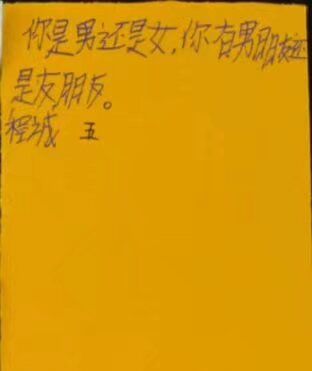 你是男还是女,你有男朋友还
是友朋友。
程城 五